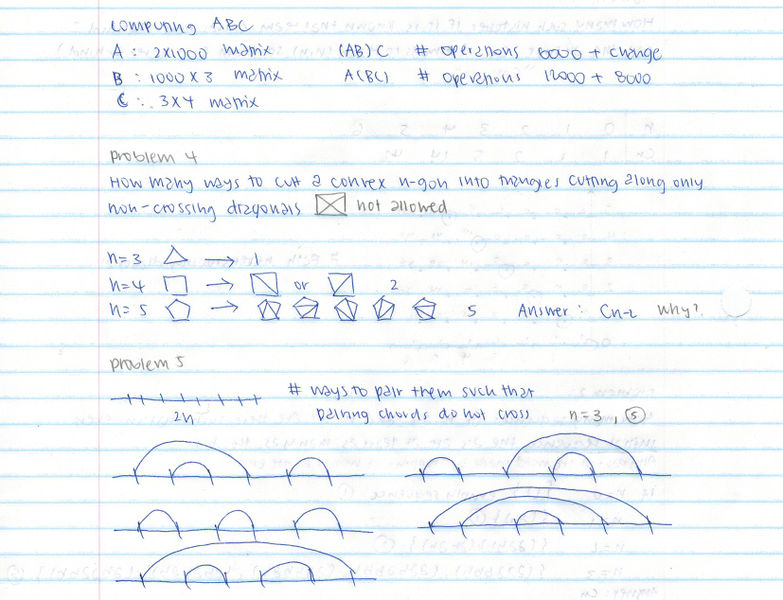 Computing ABC
A : 2x1000 matrix (AB)C # operations 6000 + change
B : 1000 x 3 matrix A(BC) # operations 12000 + 8000
C : 3x4 matrix
Problem 4
How many ways to cut a convex n-gon into triangles cutting along only
non-crossing diagonals not allowed
n=3 → 1
n=4 → or 2
n=5 → 5 Answer: Cn-2 Why?
Problem 5
# ways to pair them such that
2n pairing chords do not cross n=3, 5